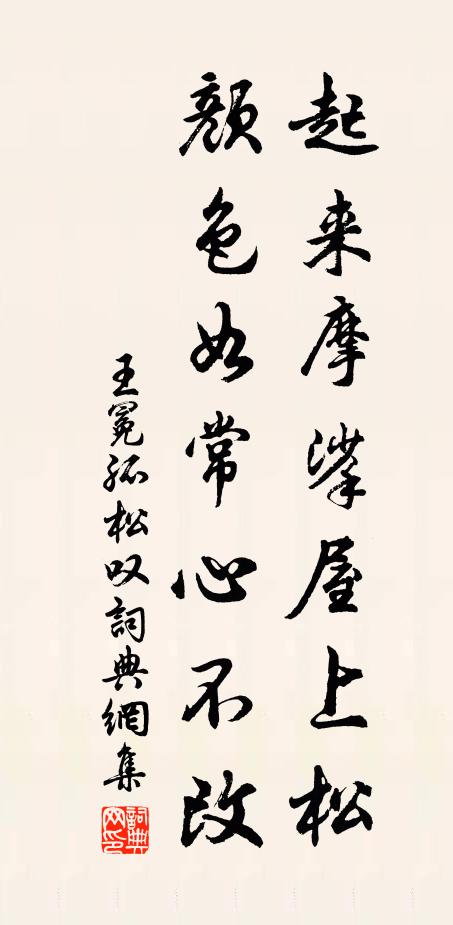 起来摩挲屋上松
颜色如常心不改
王冕孤松叹詞典網集
詞典网印